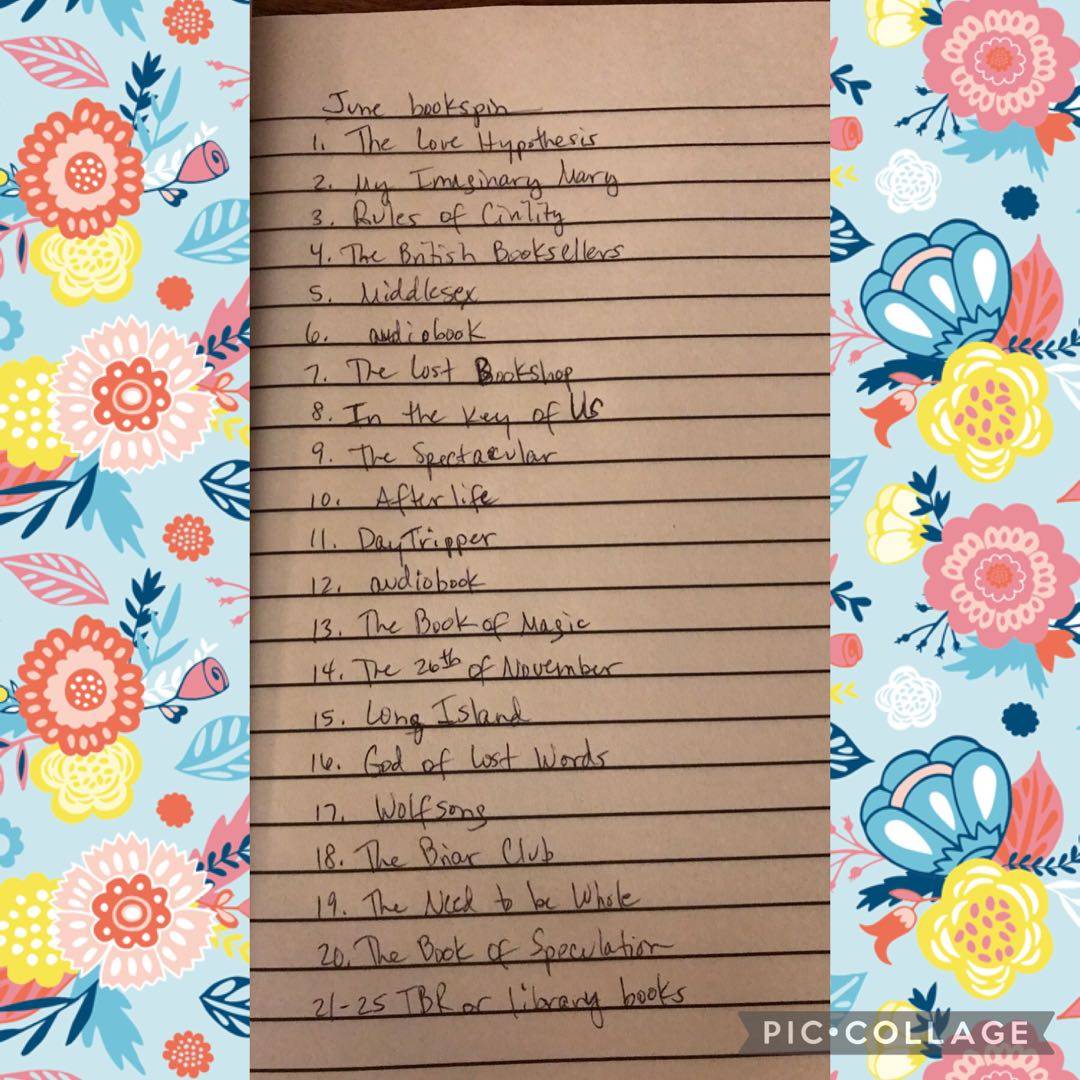 June bookspin
1. The Love Hypothesis
2. My Imaginary Mary
3. Rules of Civility
4. The British Booksellers
5. Middlesex
6. audiobook
7. The Lost Bookshop
8. In the Key of Us
9. The Spectacular
10. Afterlife
11. DayTripper
12. audiobook
13. The Book of Magic
14. The 26th of November
15. Long Island
16. God of Lost Words
17. Wolfsong
18. The Briar Club
19. The Need to be Whole
20. The Book of Speculation
21-25 TBR or library books
PIC•COLLAGE